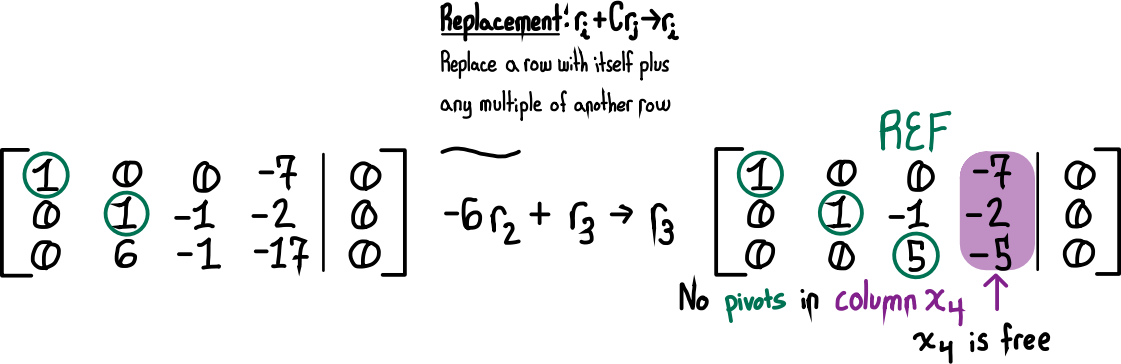 Replacement: rᵢ + Crⱼ → rᵢ
Replace a row with itself plus
any multiple of another row
REF
1 0 0 -7 | 0
0 1 -1 -2 | 0
0 6 -1 -17 | 0
-6r₂ + r₃ → r₃
1 0 0 -7 | 0
0 1 -1 -2 | 0
0 0 5 -5 | 0
No pivots in column x₄
x₄ is free